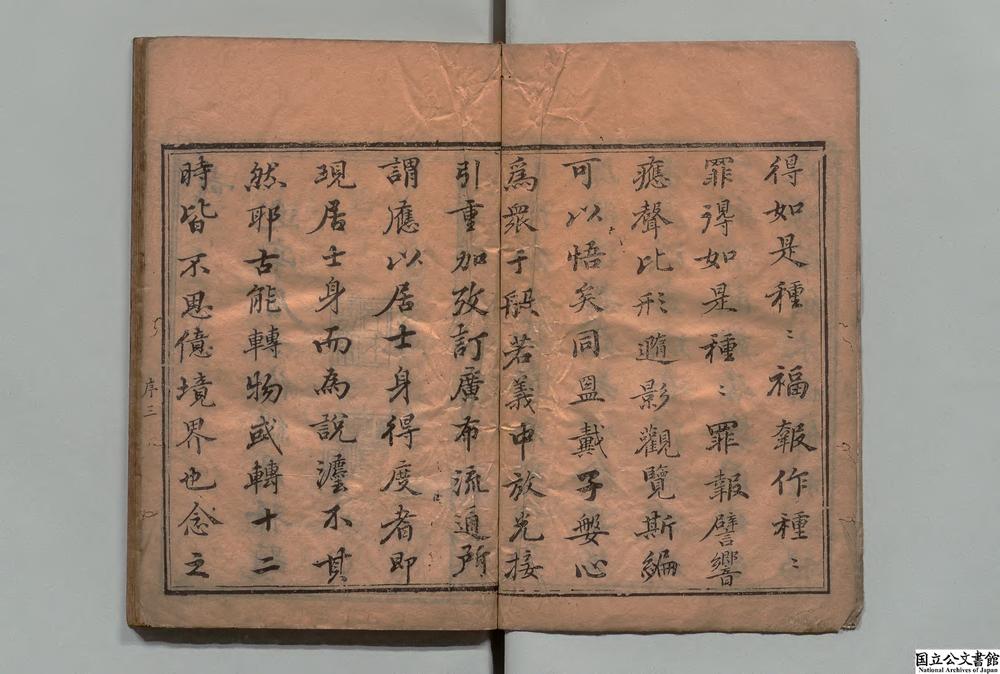 得如是種〻福報作種〻
罪得如是種〻罪報譬響
應聲比形隨影觀覽斯編
可以悟矣同盟戴子盤心
爲衆于般若義中放光接
引重加攷訂廣布流通所
謂應以居士身得度者即
現居士身而爲說灋不其
然耶古能轉物或轉十二
時皆不思億境界也念之
序三
国立公文書館
National Archives of Japan